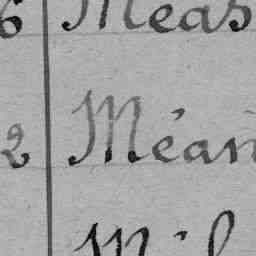 6 Meas
2 Méan
Mil